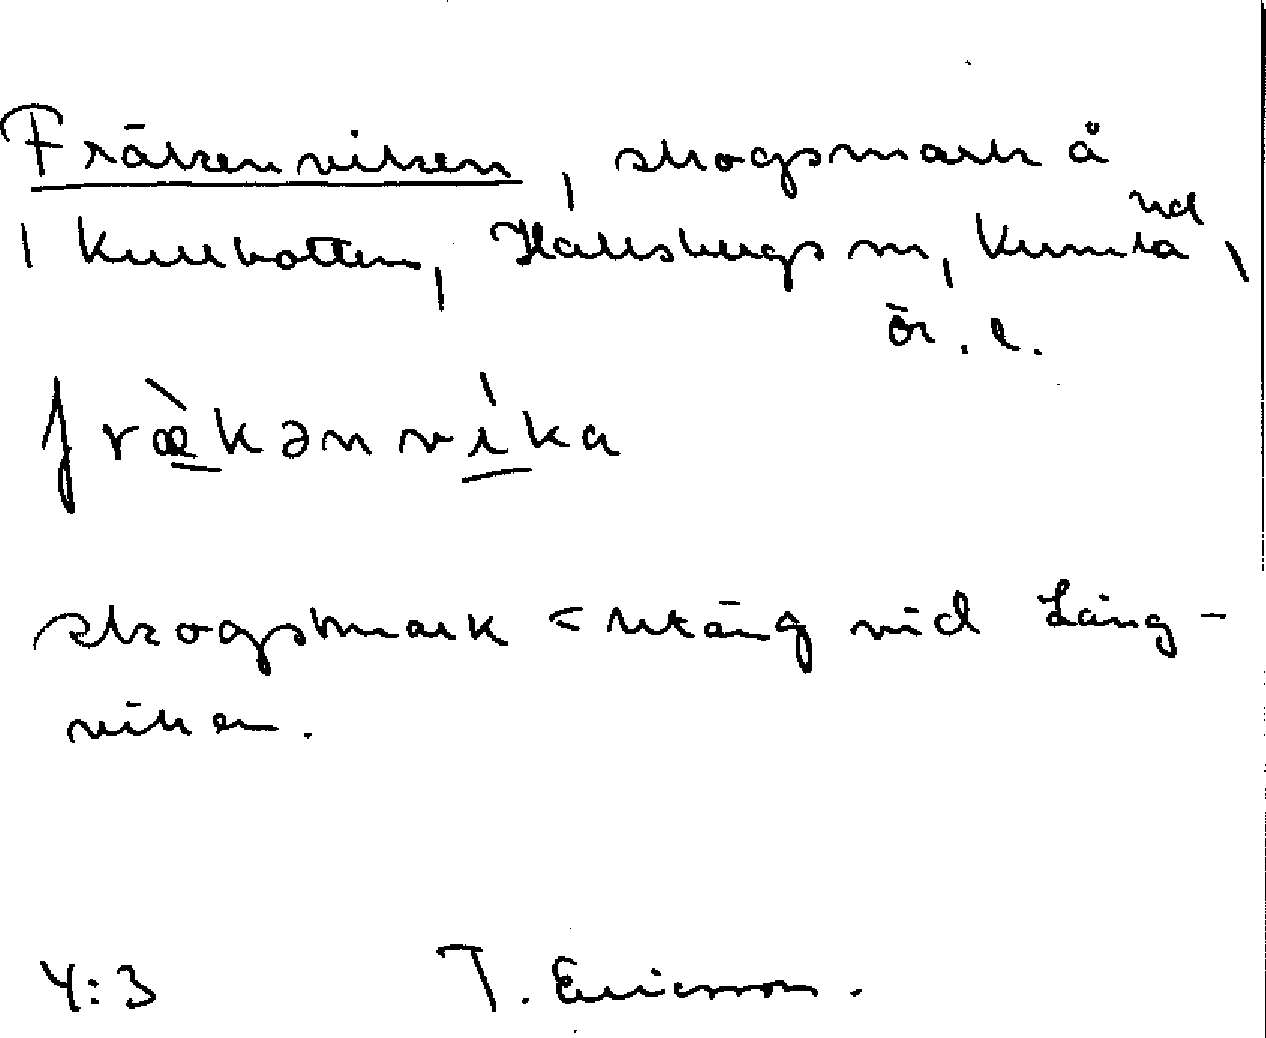 Fräkenviken, skogsmark å
Kullbotten, Hallsbergs sn, Kumla hd,
ör. l.
fræ̀kənvíka
skogsmark < utäng vid Lång-
viken.
4:3 T. Ericsson.